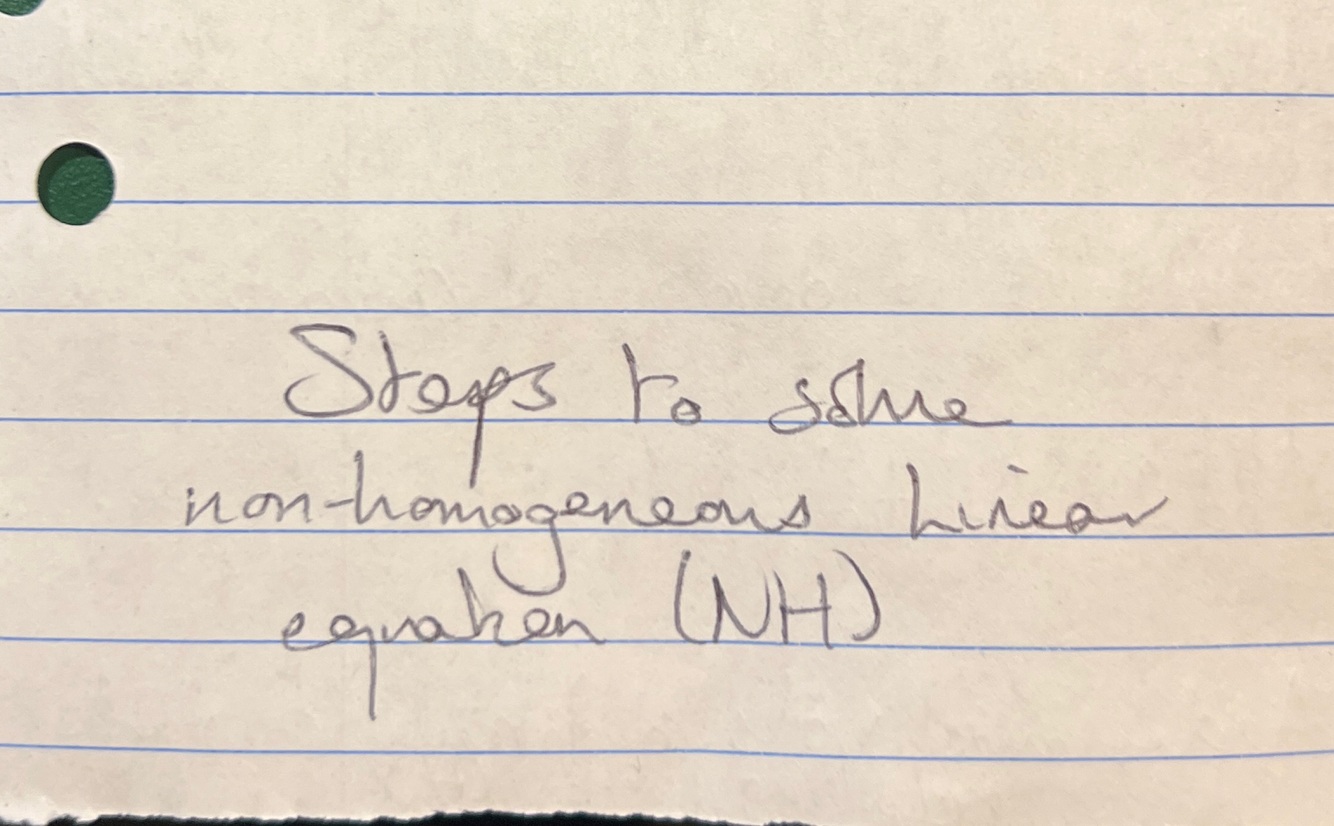 Steps to solve
non-homogeneous Linear
equation (NH)